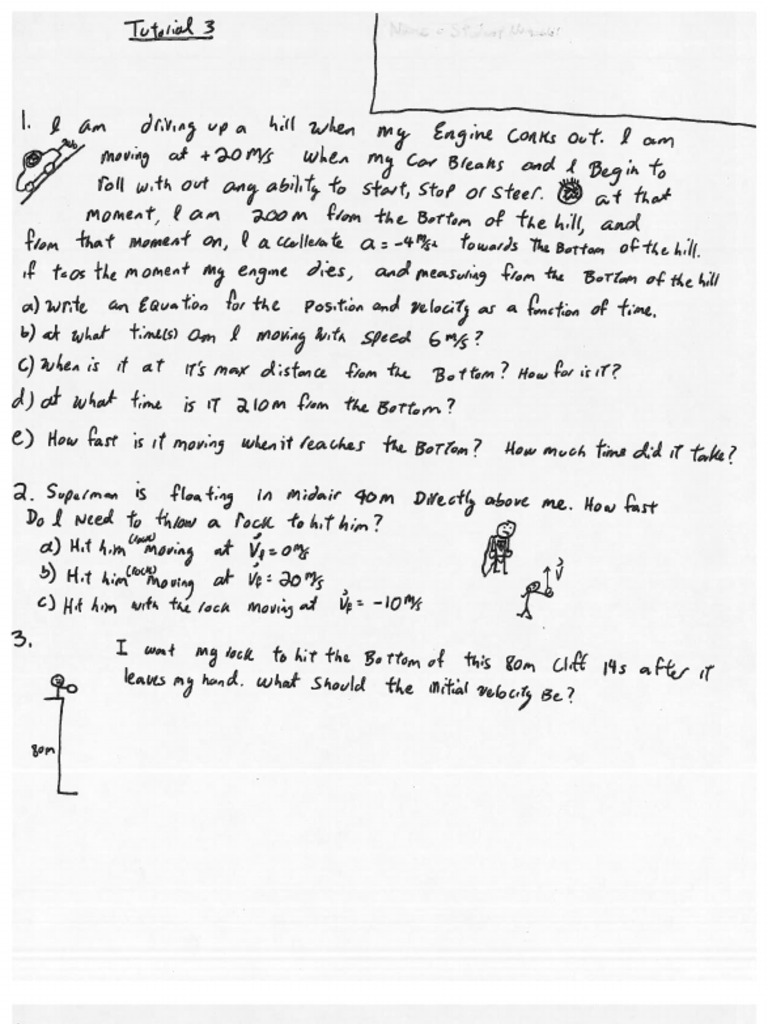 Tutorial 3
Name + Student Number
1. I am driving up a hill when my Engine conks out. I am
moving at +20 m/s when my car Breaks and I Begin to
roll with out any ability to start, stop or steer. at that
moment, I am 200m from the Bottom of the hill, and
from that moment on, I accellerate a = -4 m/s² towards The Bottom of the hill.
if t=0s the moment my engine dies, and measuring from the Bottom of the hill
a) write an Equation for the position and velocity as a function of time.
b) at what time(s) am I moving with speed 6 m/s?
c) When is it at it's max distance from the Bottom? How far is it?
d) at what time is it 210m from the Bottom?
e) How fast is it moving when it reaches the Bottom? How much time did it take?
2. Superman is floating in midair 40m Directly above me. How fast
Do I need to throw a rock to hit him?
a) Hit him (rock) moving at Vf = 0 m/s
b) Hit him (rock) moving at Vf = 20 m/s
c) Hit him with the rock moving at Vf = -10 m/s
V
3. I want my rock to hit the Bottom of this 80m Cliff 14s after it
leaves my hand. What should the initial velocity Be?
80m